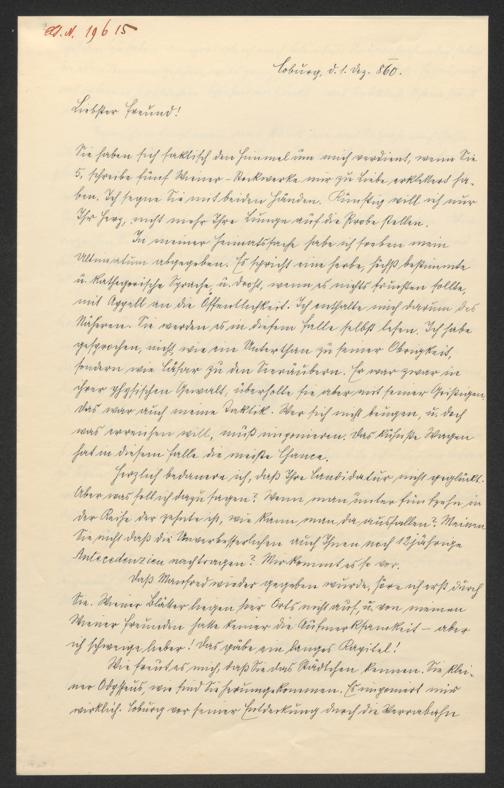 A. N. 19615
Coburg, d. 1. Dez. 860.
Liebster Freund!
Sie haben sich faktisch den Himmel um mich verdient, wenn Sie
5, schreibe fünf Wiener-Stockwerke mir zu Liebe erklettert ha-
ben. Ich segne Sie mit beiden Händen. Künftig will ich nur
Ihr Herz, nicht mehr Ihre Lunge auf die Probe stellen.
In meiner Heimatsache habe ich soeben mein
Ultimatum abgegeben. Es spricht eine herbe, höchst bestimmte
u. kathegorische Sprache u. droht, wenn es nichts fruchten sollte,
mit Appell an die Öffentlichkeit. Ich enthalte mich darum des
Näheren. Sie werden es in diesem Falle selbst lesen. Ich habe
gesprochen, nicht, wie ein Unterthan zu seiner Obrigkeit,
sondern wie Cäsar zu den Seeräubern. Er war zwar in
ihrer physischen Gewalt, überholte sie aber mit seiner Geistigen.
Das war auch meine Taktik. Wer sich nicht beugen, u. doch
was erreichen will, muß imponieren. Das kühnste Wagen
hat in diesem Falle die meiste Chance.
Herzlich bedauere ich, daß Ihre Candidatur nicht geglückt.
Aber was soll ich dazu sagen? Wenn man unter fünfzehn in
der Reihe der zehnte ist, wie kann man da ausfallen? Meinen
Sie nicht daß die Unverbesserlichen auch Ihnen noch 12jährige
Antecedenzien nachtragen? Mir kommt es so vor.
Daß Manfred wieder gegeben wurde, höre ich erst durch
Sie. Wiener Blätter liegen hier Orts nicht auf, u. von meinen
Wiener Freunden hatte keiner die Aufmerksamkeit – aber
ich schweige lieber! Das gäbe ein langes Kapitel!
Wie freut es mich, daß Sie das Städtchen kennen. Sie klei-
ner Odysseus, wo sind Sie herumgekommen. Es imponiert mir
wirklich. Coburg vor seiner Entdeckung durch die Werrabahn